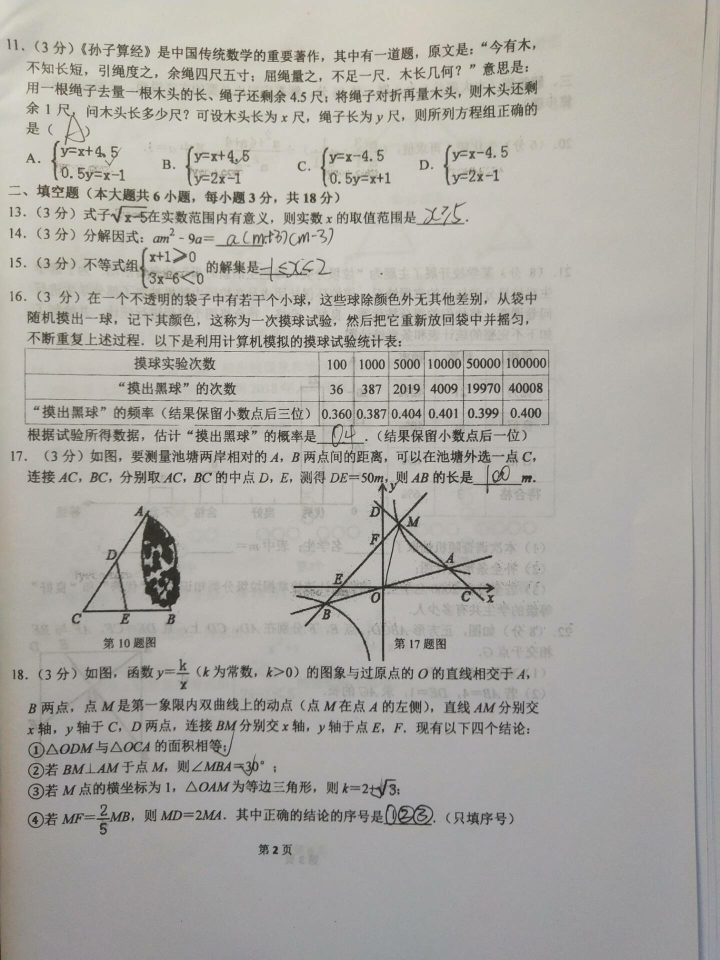 11.（3 分）《孙子算经》是中国传统数学的重要著作，其中有一道题，原文是：“今有木，
不知长短，引绳度之，余绳四尺五寸；屈绳量之，不足一尺．木长几何？”意思是：
用一根绳子去量一根木头的长、绳子还剩余 4.5 尺；将绳子对折再量木头，则木头还剩
余 1 尺，问木头长多少尺？可设木头长为 x 尺，绳子长为 y 尺，则所列方程组正确的
是（ A ）
A. {y=x+4.5 B. {y=x+4.5 C. {y=x-4.5 D. {y=x-4.5
0.5y=x-1 y=2x-1 0.5y=x+1 y=2x-1
二、填空题（本大题共 6 小题，每小题 3 分，共 18 分）
13.（3 分）式子√x-5在实数范围内有意义，则实数 x 的取值范围是 x≥5 .
14.（3 分）分解因式：am² - 9a= a(m+3)(m-3)
15.（3 分）不等式组{x+1≥0 的解集是 -1≤x≤2
3x-6<0
16.（3 分）在一个不透明的袋子中有若干个小球，这些球除颜色外无其他差别，从袋中
随机摸出一球，记下其颜色，这称为一次摸球试验，然后把它重新放回袋中并摇匀，
不断重复上述过程．以下是利用计算机模拟的摸球试验统计表：
摸球实验次数 100 1000 5000 10000 50000 100000
“摸出黑球”的次数 36 387 2019 4009 19970 40008
“摸出黑球”的频率（结果保留小数点后三位） 0.360 0.387 0.404 0.401 0.399 0.400
根据试验所得数据，估计“摸出黑球”的概率是 0.4 .（结果保留小数点后一位）
17.（3 分）如图，要测量池塘两岸相对的 A，B 两点间的距离，可以在池塘外选一点 C，
连接 AC，BC，分别取 AC，BC 的中点 D，E，测得 DE=50m，则 AB 的长是 100 m.
A
D
C E B
第 10 题图
y
D
M
F
A
E
O
C x
B
第 17 题图
18.（3 分）如图，函数 y=k/x（k 为常数，k>0）的图象与过原点的 O 的直线相交于 A，
B 两点，点 M 是第一象限内双曲线上的动点（点 M 在点 A 的左侧），直线 AM 分别交
x 轴，y 轴于 C，D 两点，连接 BM 分别交 x 轴，y 轴于点 E，F．现有以下四个结论：
①△ODM 与△OCA 的面积相等；
②若 BM⊥AM 于点 M，则∠MBA=30°；
③若 M 点的横坐标为 1，△OAM 为等边三角形，则 k=2+√3；
④若 MF=2/5MB，则 MD=2MA．其中正确的结论的序号是①②③．（只填序号）
第 2 页